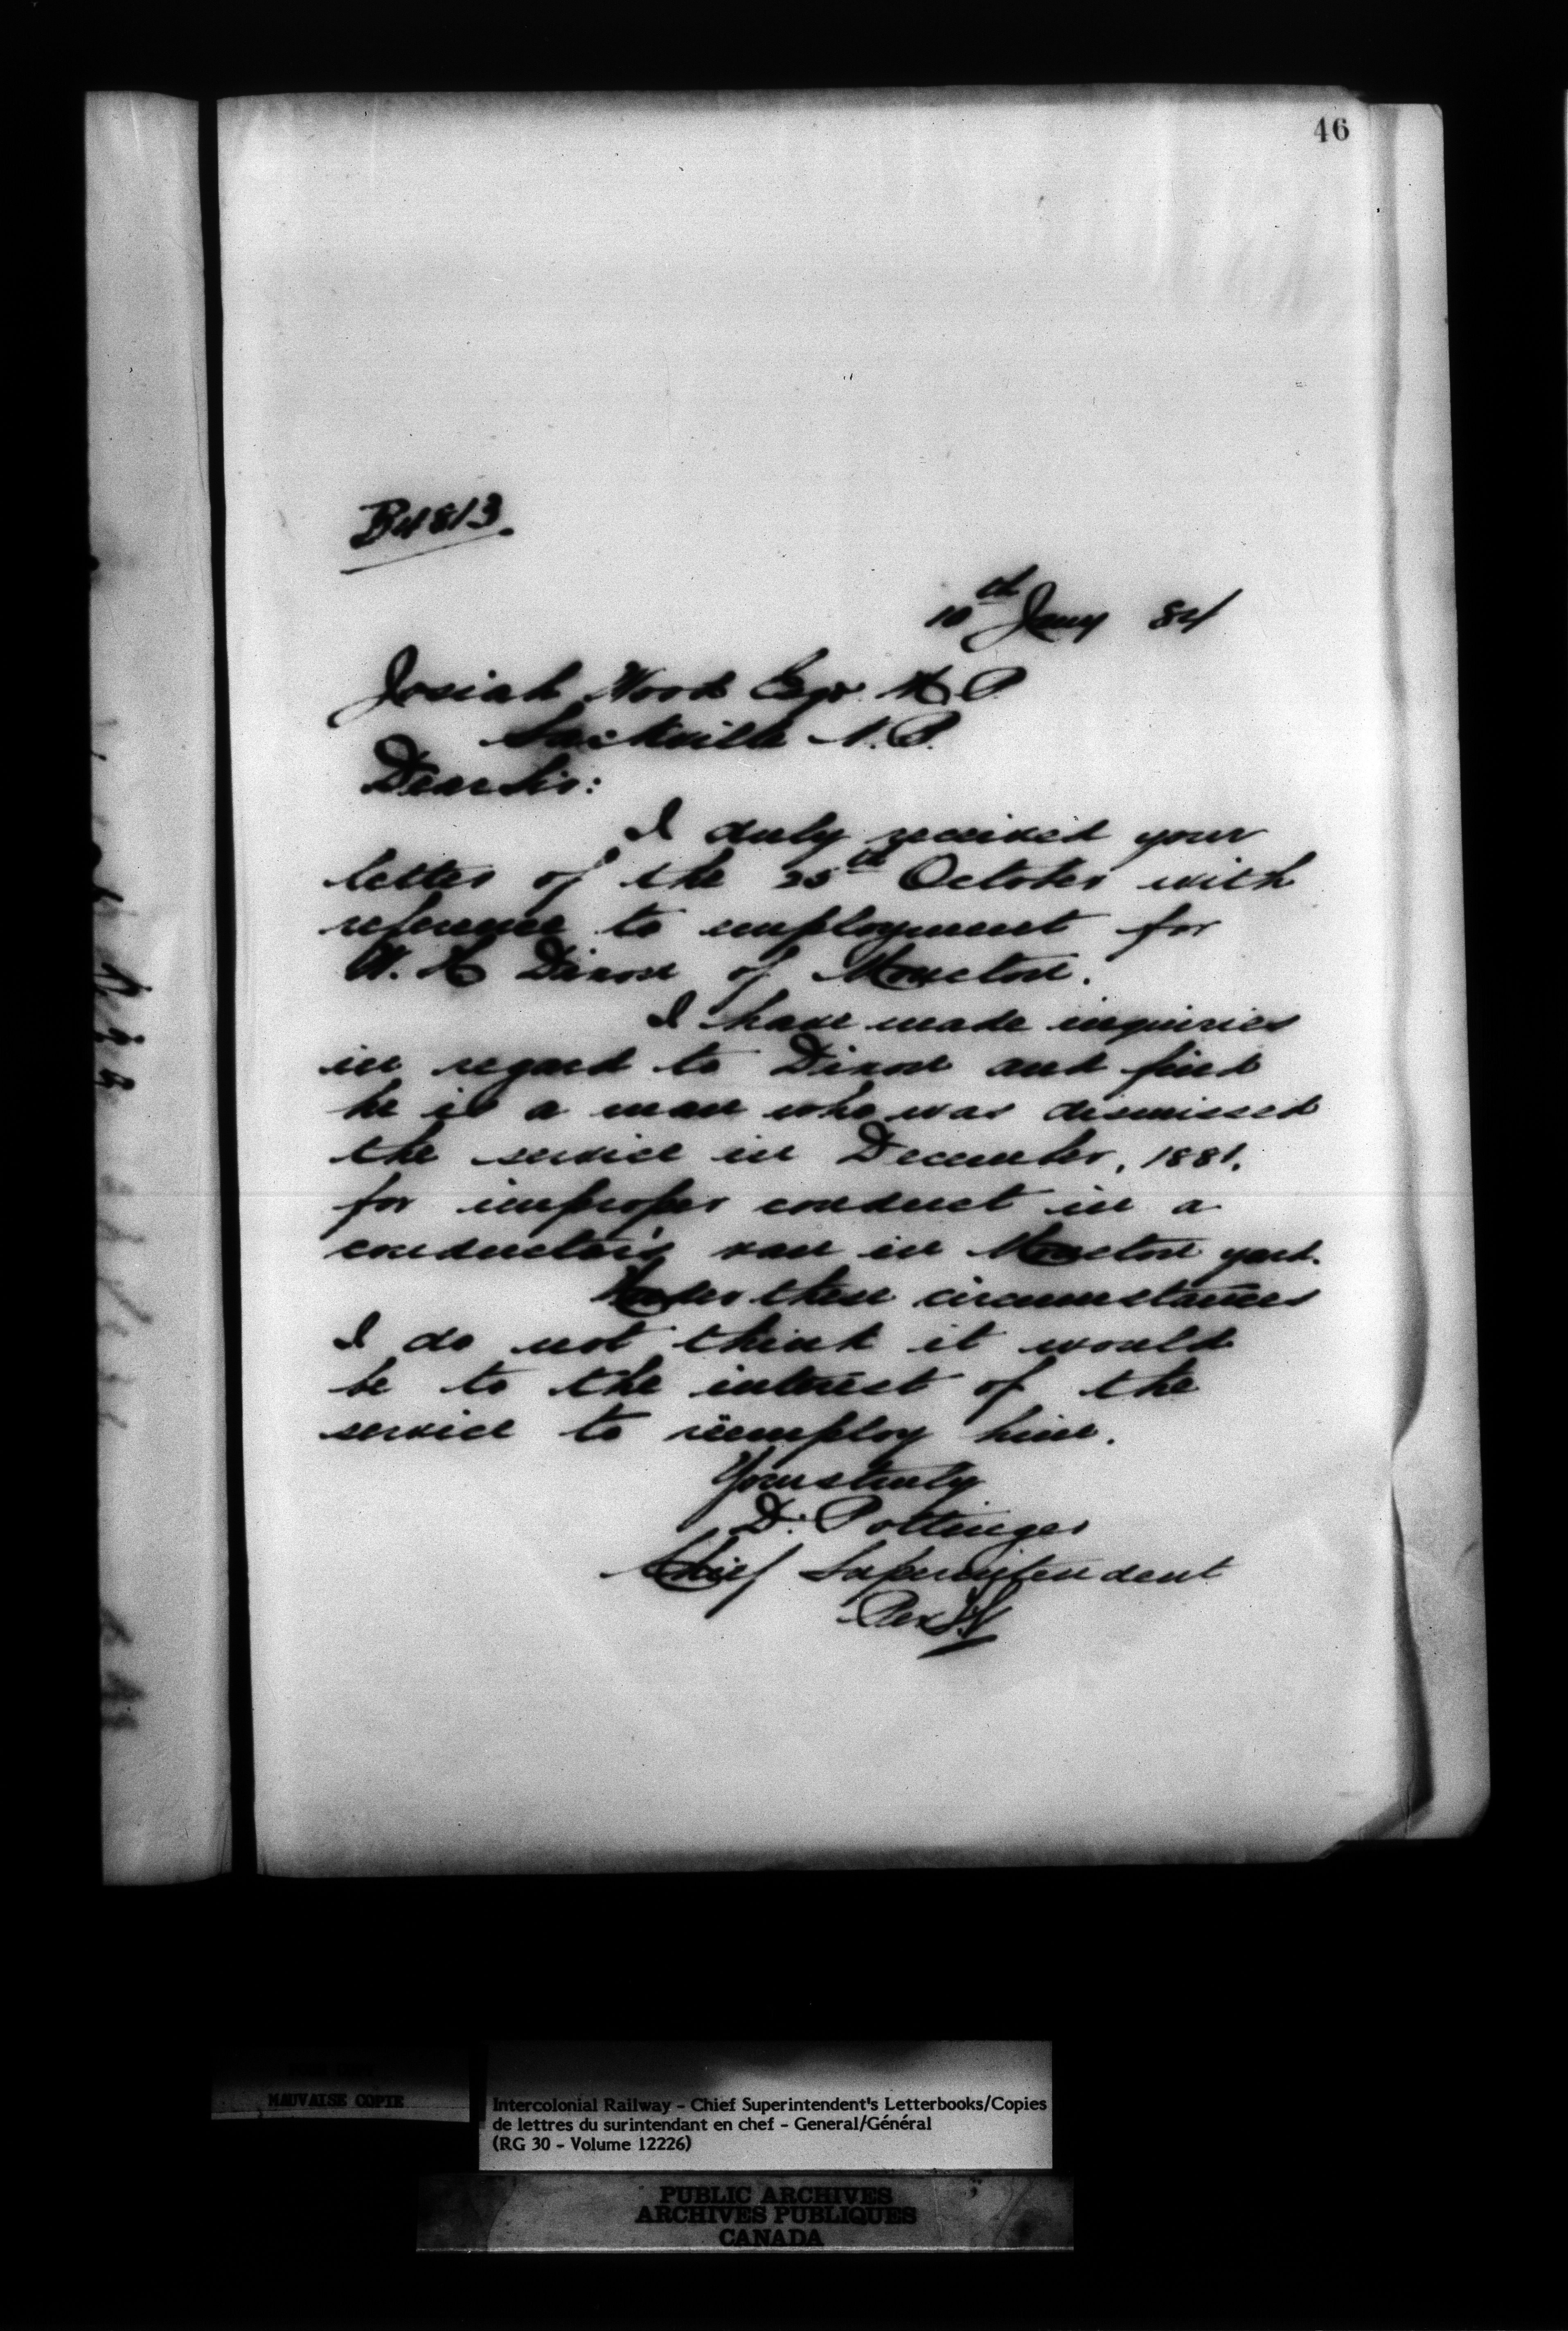 46
B4813.
10th Jany 84
Josiah Wood Esqr. M.P.
Sackville N.B.
Dear Sir:
I duly received your
letter of the 25th October with
reference to employment for
W. H Dixon of Moncton.
I have made inquiries
in regard to Dixon and find
he is a man who was dismissed
the service in December, 1881,
for improper conduct in a
conductor's van in Moncton yard.
Under these circumstances
I do not think it would
be to the interest of the
service to reëmploy him.
Yours truly
D. Pottinger
Chief Superintendent
Per
MAUVAISE COPIE
Intercolonial Railway - Chief Superintendent's Letterbooks/Copies
de lettres du surintendant en chef - General/Général
(RG 30 - Volume 12226)
PUBLIC ARCHIVES
ARCHIVES PUBLIQUES
CANADA